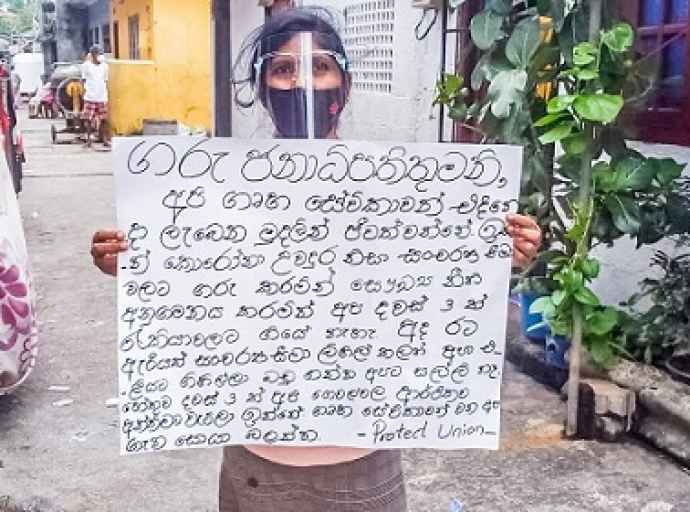 ගරු ජනාධිපතිතුමනි,
අපි ගෘහ සේවිකාවන් එදිනෙ
දා ලැබෙන මුදලින් ජීවත්වන්නේ
න් කොරෝනා උවදුර නිසා සංචරණ සීමා
වලට ගරු කරමින් සෞඛ්‍ය නීති
අනුගමනය කරමින් අප දවස් 3 ක්
රැකියාවලට ගියේ නැහැ. අද රට
ඇරියත් සංචරණ සීමා ලිහිල් කලත් අප එ
ලියට ගිහිල්ලා බඩු ගන්න අපට සල්ලි නෑ.
හේතුව දවස් 3 ක් අපි ගෙවල්වල ආර්ථිකව
වැටිලා ඉන්නේ ගෘහ සේවිකාවන් වන අප
ගැන සොයා බලන්න. - Protect Union -